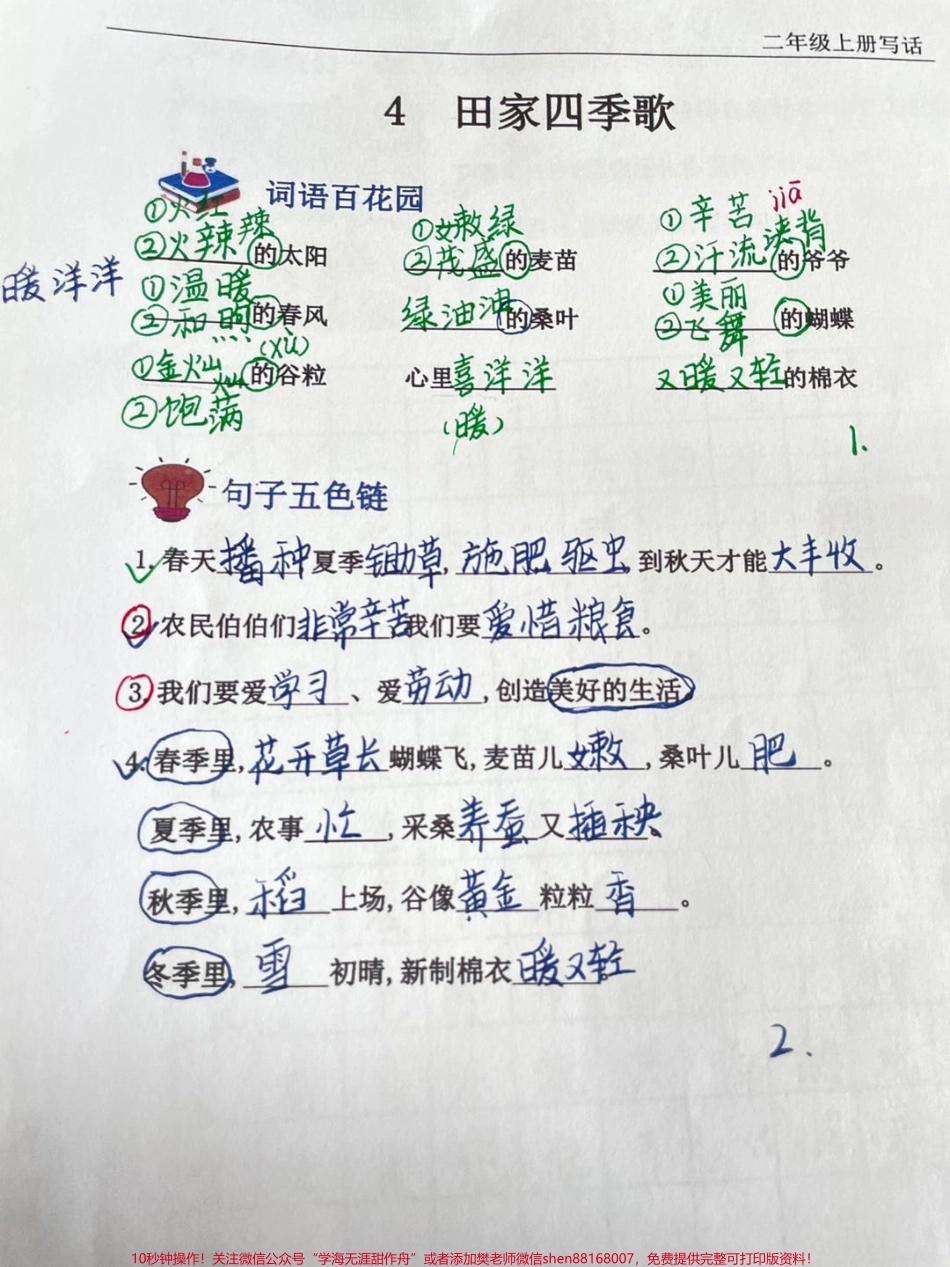 二年级上册写话
4 田家四季歌
词语百花园
①火红 ①嫩绿 ①辛苦 jiā
②火辣辣的太阳 ②茂盛的麦苗 ②汗流浃背的爷爷
暖洋洋
①温暖 ①美丽
②和煦的春风 绿油油的桑叶 ②飞舞的蝴蝶
(xù)
①金灿灿的谷粒 心里喜洋洋 又暖又轻的棉衣
②饱满 (暖)
1.
句子五色链
1.春天播种夏季锄草,施肥 驱虫,到秋天才能大丰收。
2.农民伯伯们非常辛苦我们要爱惜粮食。
3.我们要爱学习、爱劳动,创造美好的生活。
4.春季里,花开草长蝴蝶飞,麦苗儿嫩,桑叶儿肥。
夏季里,农事忙,采桑养蚕又插秧。
秋季里,稻上场,谷像黄金粒粒香。
冬季里,雪初晴,新制棉衣暖又轻。
2.
10秒钟操作!关注微信公众号“学海无涯甜作舟”或者添加樊老师微信shen88168007,免费提供完整可打印版资料!